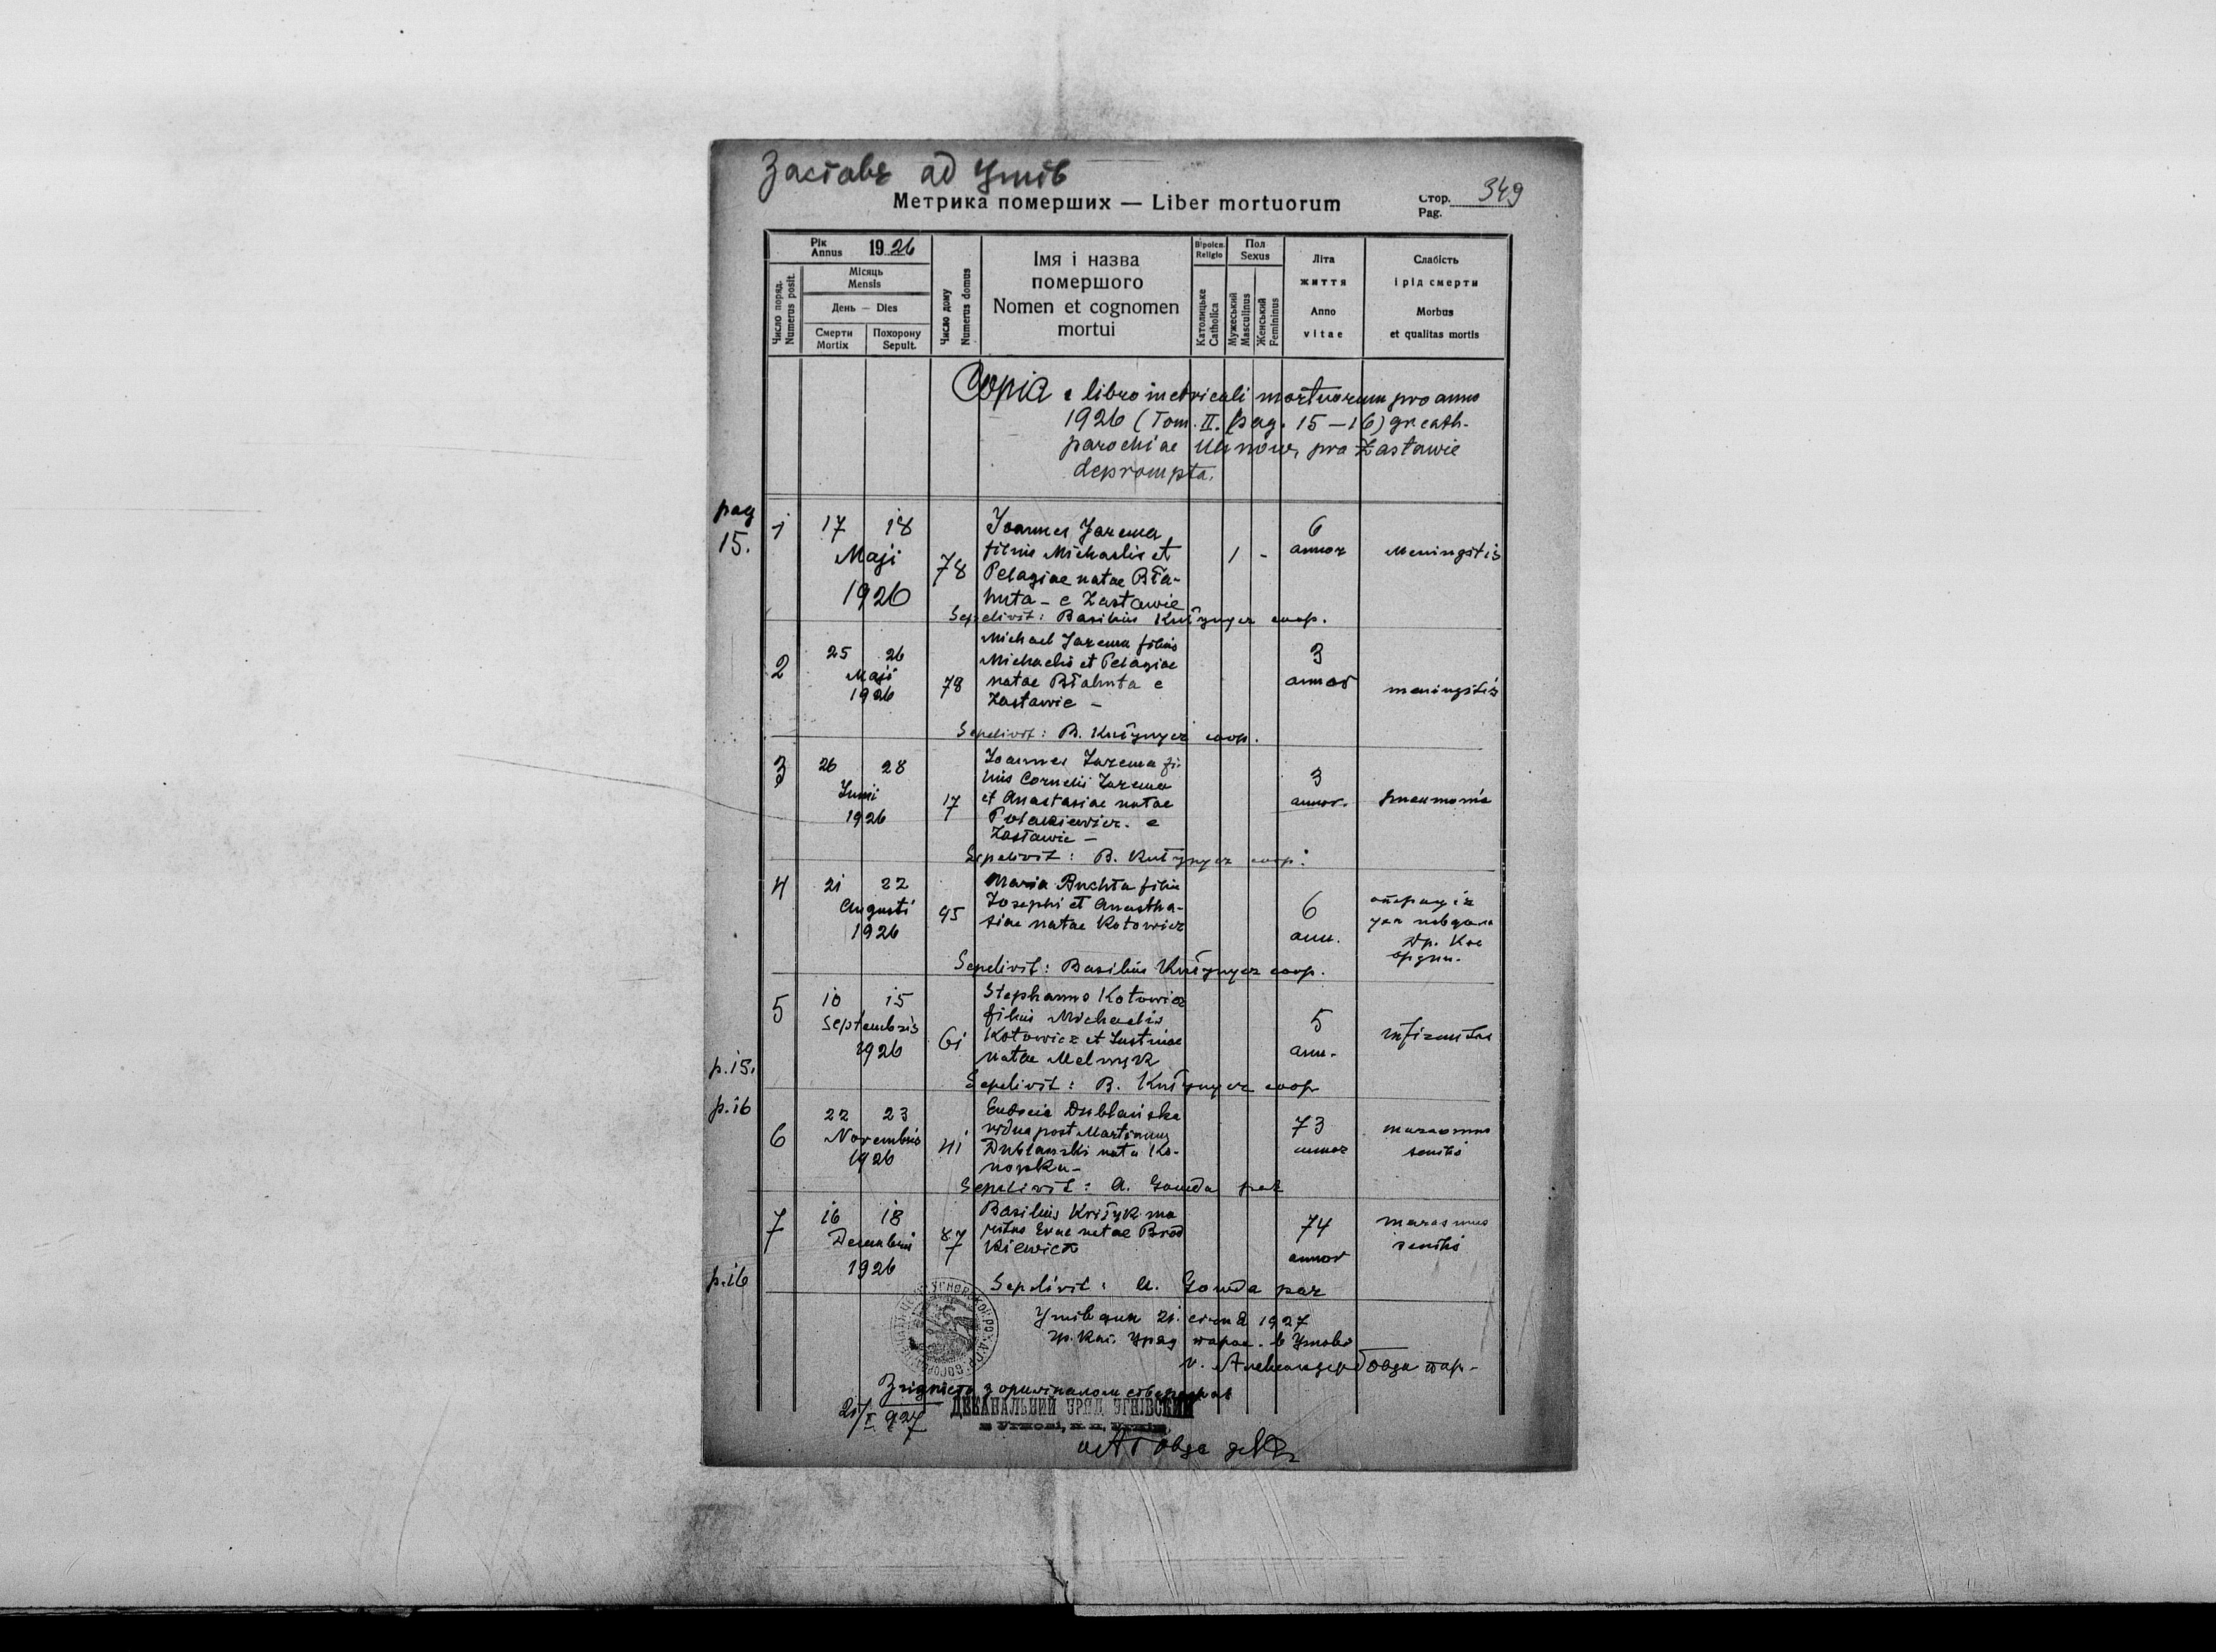 Заставє ad Угнів
Метрика померших — Liber mortuorum
Стор. 349
Pag.
Рік
Annus 1926
Місяць
Mensis
День — Dies
Число поряд.
Numerus posit.
Смерти
Mortix
Похорону
Sepult.
Число дому
Numerus domus
Імя і назва
помершого
Nomen et cognomen
mortui
Віроісп.
Religio
Католицьке
Catholica
Пол
Sexus
Мужеський
Masculinus
Женський
Femininus
Літа
життя
Anno
vitae
Слабість
і рід смерти
Morbus
et qualitas mortis
Copia e libro metricali mortuorum pro anno
1926 (Tom. II. pag. 15—16) gr cath.
parochiae Uhnów, pro Zastawie
deprompta.
pag
15.
1 17 18
Maji
1926
78
Joannes Jarema
filius Michaelis et
Pelagiae natae Bła-
huta - e Zastawie
1 -
6
annor
Meningitis
Sepelivit: Basilius coop.
2 25 26
Maji
1926
78
Michael Jarema filius
Michaelis et Pelagiae
natae Błahuta e
Zastawie -
3
annor
meningitis
Sepelivit: B. coop.
3 26 28
Junii
1926
17
Joannes Jarema fi-
lius Cornelii Jarema
et Anastasiae natae
e
Zastawie -
3
annor.
pneumonia
Sepelivit: B. coop.
4 21 22
Augusti
1926
95
Maria Buchta filia
Josephi et Anastha-
siae natae Kotowicz
6
ann.
Др.
Sepelivit: Basilius coop.
5 10 15
Septembris
1926
61
Stephanus Kotowicz
filius Michaelis
Kotowicz et Justinae
natae Melnyk
5
ann.
p.15.
Sepelivit: B. coop
p.16
6 22 23
Novembris
1926
41
Eudocia Dublańska
vidua post Martinum
Dublanski nata Ko-
nopka -
73
annor
marasmus
senilis
Sepelivit: A. Gowda par
7 16 18
Decembris
1926
87
Basilius ma
ritus Evae natae Brod
kiewicz
74
annor
marasmus
senilis
p.16
Sepelivit: A. Gowda par
Угнів дня 21. січня 1927
гр. кат. Уряд парох. в Угнові
о. Александер Говда пар.
Згідність з оригіналом стверджає
21/I 927
ДЕКАНАЛЬНИЙ УРЯД УГНІВСКИЙ
в Угнові, п. п. Угнів
о А Говда